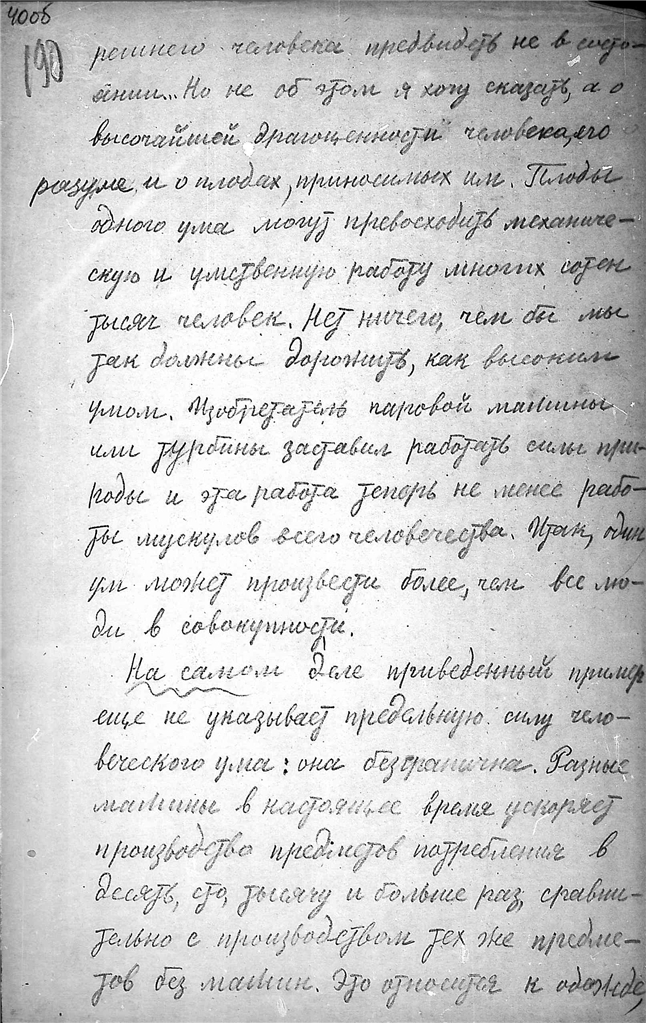 40об
190
решнего человека предвидеть не в состо-
янии... Но не об этом я хочу сказать, а о
высочайшей драгоценности человека, его
разуме и о плодах, приносимых им. Плоды
одного ума могут превосходить механиче-
скую и умственную работу многих сотен
тысяч человек. Нет ничего, чем бы мы
так должны дорожить, как высоким
умом. Изобретатель паровой машины
или турбины заставил работать силы при-
роды и эта работа теперь не менее рабо-
ты мускулов всего человечества. Итак, один
ум может произвести более, чем все лю-
ди в совокупности.
На самом деле приведенный пример
еще не указывает предельную силу чело-
веческого ума: она безгранична. Разные
машины в настоящее время ускоряет
производства предметов потребления в
десять, сто, тысячу и больше раз, сравни-
тельно с производством тех же предме-
тов без машин. Это относится к одежде,